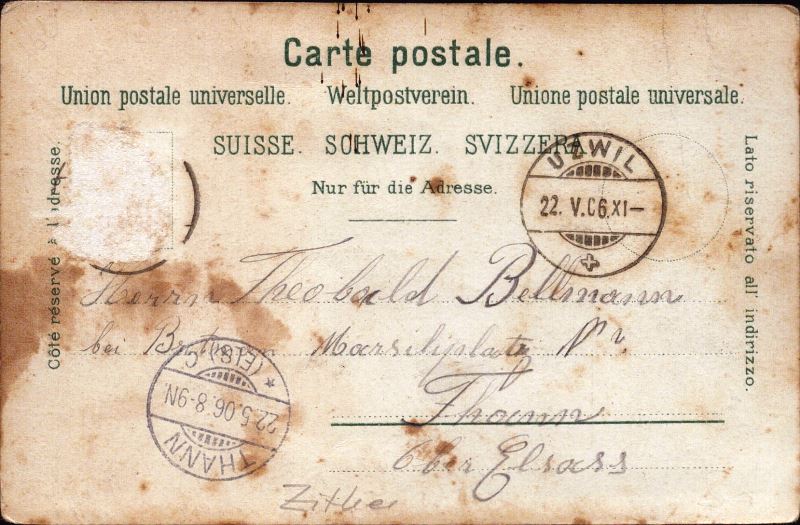 Carte postale.
Union postale universelle. Weltpostverein. Unione postale universale.
SUISSE. SCHWEIZ. SVIZZERA
Nur für die Adresse.
Côté réservé à l'adresse.
Lato riservato all' indirizzo.
UZWIL
22. V.06.XI–
Herrn Theobald Bellmann
bei Marsiliplatz Nr.
Thann
Ober Elsass
THANN
22.5.06.8-9N
* (ELS.) C
Zither